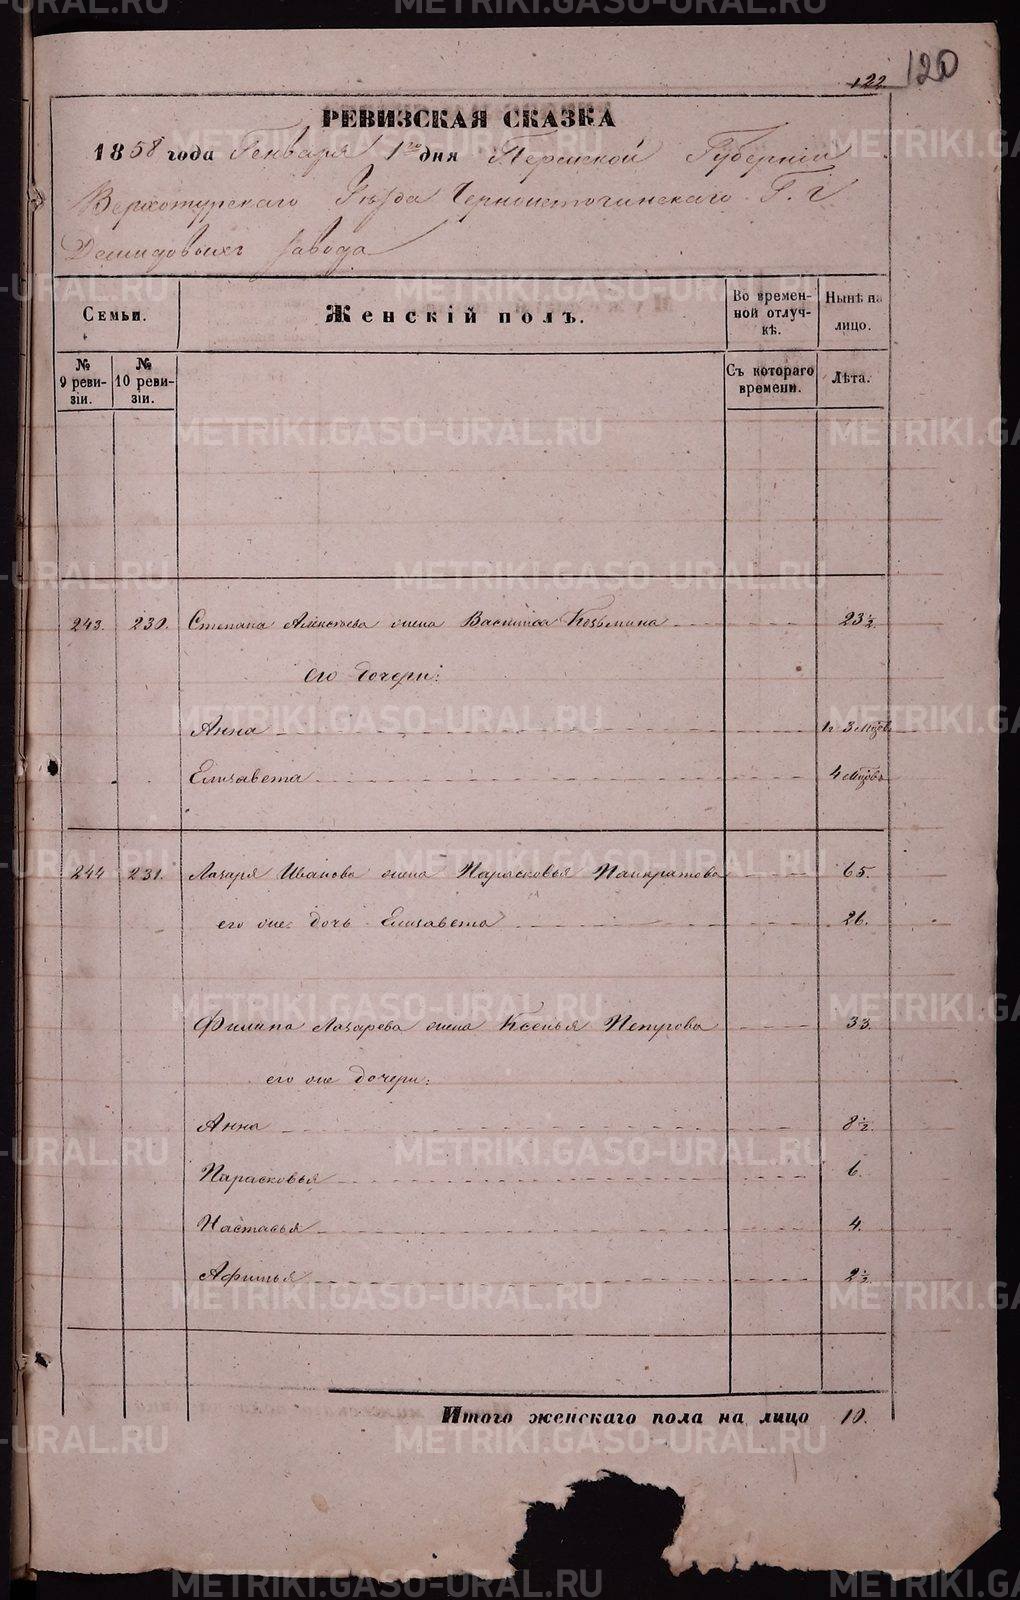 122 120
РЕВИЗСКАЯ СКАЗКА
1858 года Генваря 1го дня Пермской Губерніи
Верхотурскаго Уѣзда Черноисточинскаго Г. г.
Демидовыхъ завода
Семьи.
Женскій полъ.
Во времен-
ной отлуч-
кѣ.
Нынѣ на
лицо.
№
9 реви-
зіи.
№
10 реви-
зіи.
Съ котораго
времени.
Лѣта.
243. 230. Степана Алексѣева жена Васпитса Козьмина 23½.
его дочери:
Анна 1г 3 мѣсов.
Елизавета 4 мѣсовъ
244 231. Лазаря Иванова жена Парасковья Панкратова 65.
его же дочь Елизавета 26.
Филипа Лазарева жена Ксенья Петрова 33.
его же дочери:
Анна 8½.
Парасковья 6.
Настасья 4.
Афимья 2½.
Итого женскаго пола на лицо 10.
METRIKI.GASO-URAL.RU